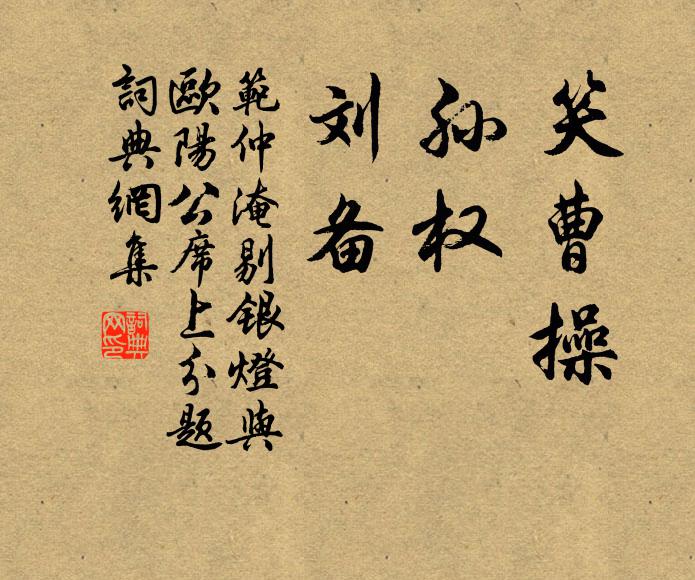 笑曹操
孙权
刘备
範仲淹剔銀燈與
歐陽公席上分題
詞典網集
詞典网印